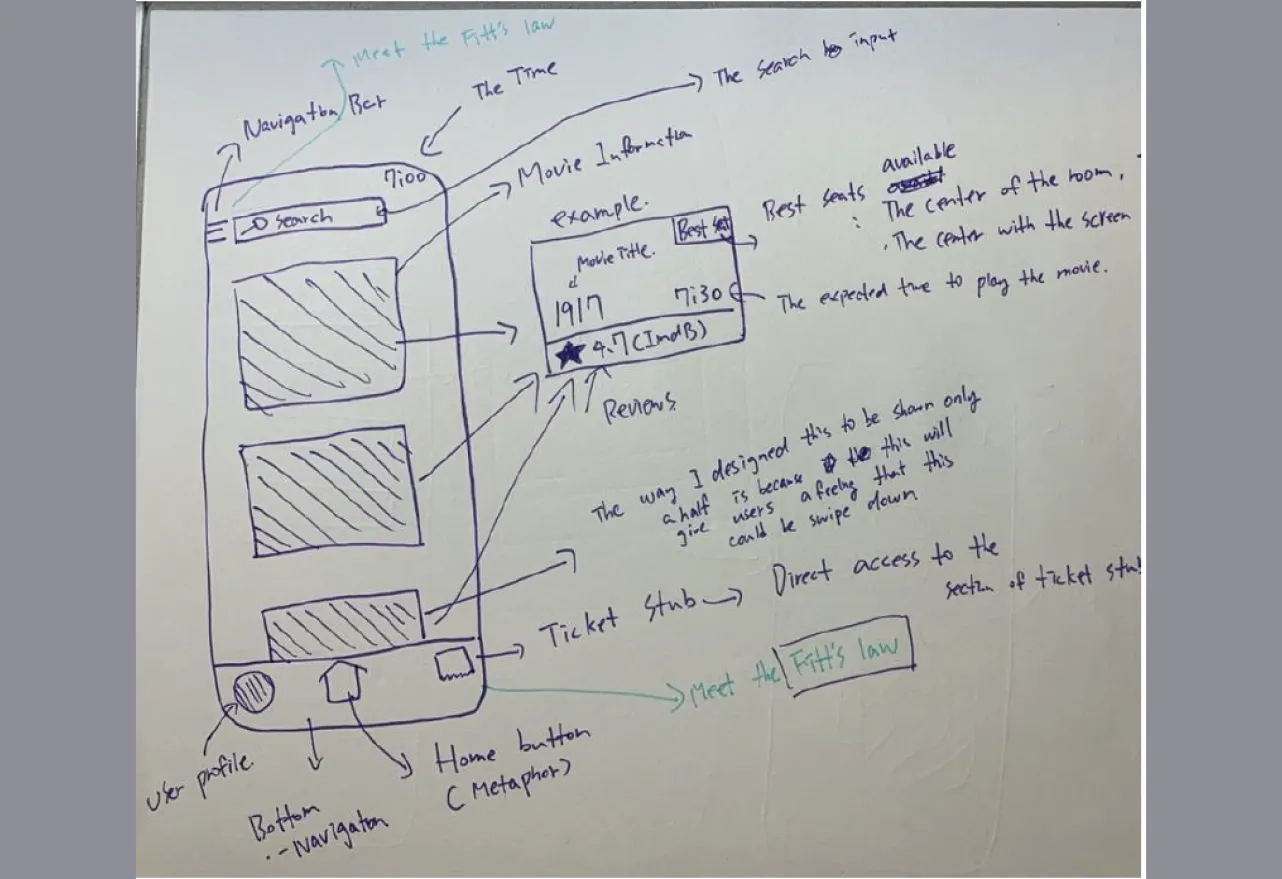 Meet the Fitt's law
The Time
Navigation Bar
The search input
7:00
search
Movie Information
example.
Best seat
Movie Title.
1917
7:30
★ 4.7 (ImdB)
Reviews
Best seats available
: The center of the room,
. The center with the screen
The expected time to play the movie.
The way I designed this to be shown only
a half is because this will
give users a feeling that this
could be swipe down
Ticket stub → Direct access to the
section of ticket stub
Meet the Fitt's law
user profile
Home button
(Metaphor)
Bottom
Navigation